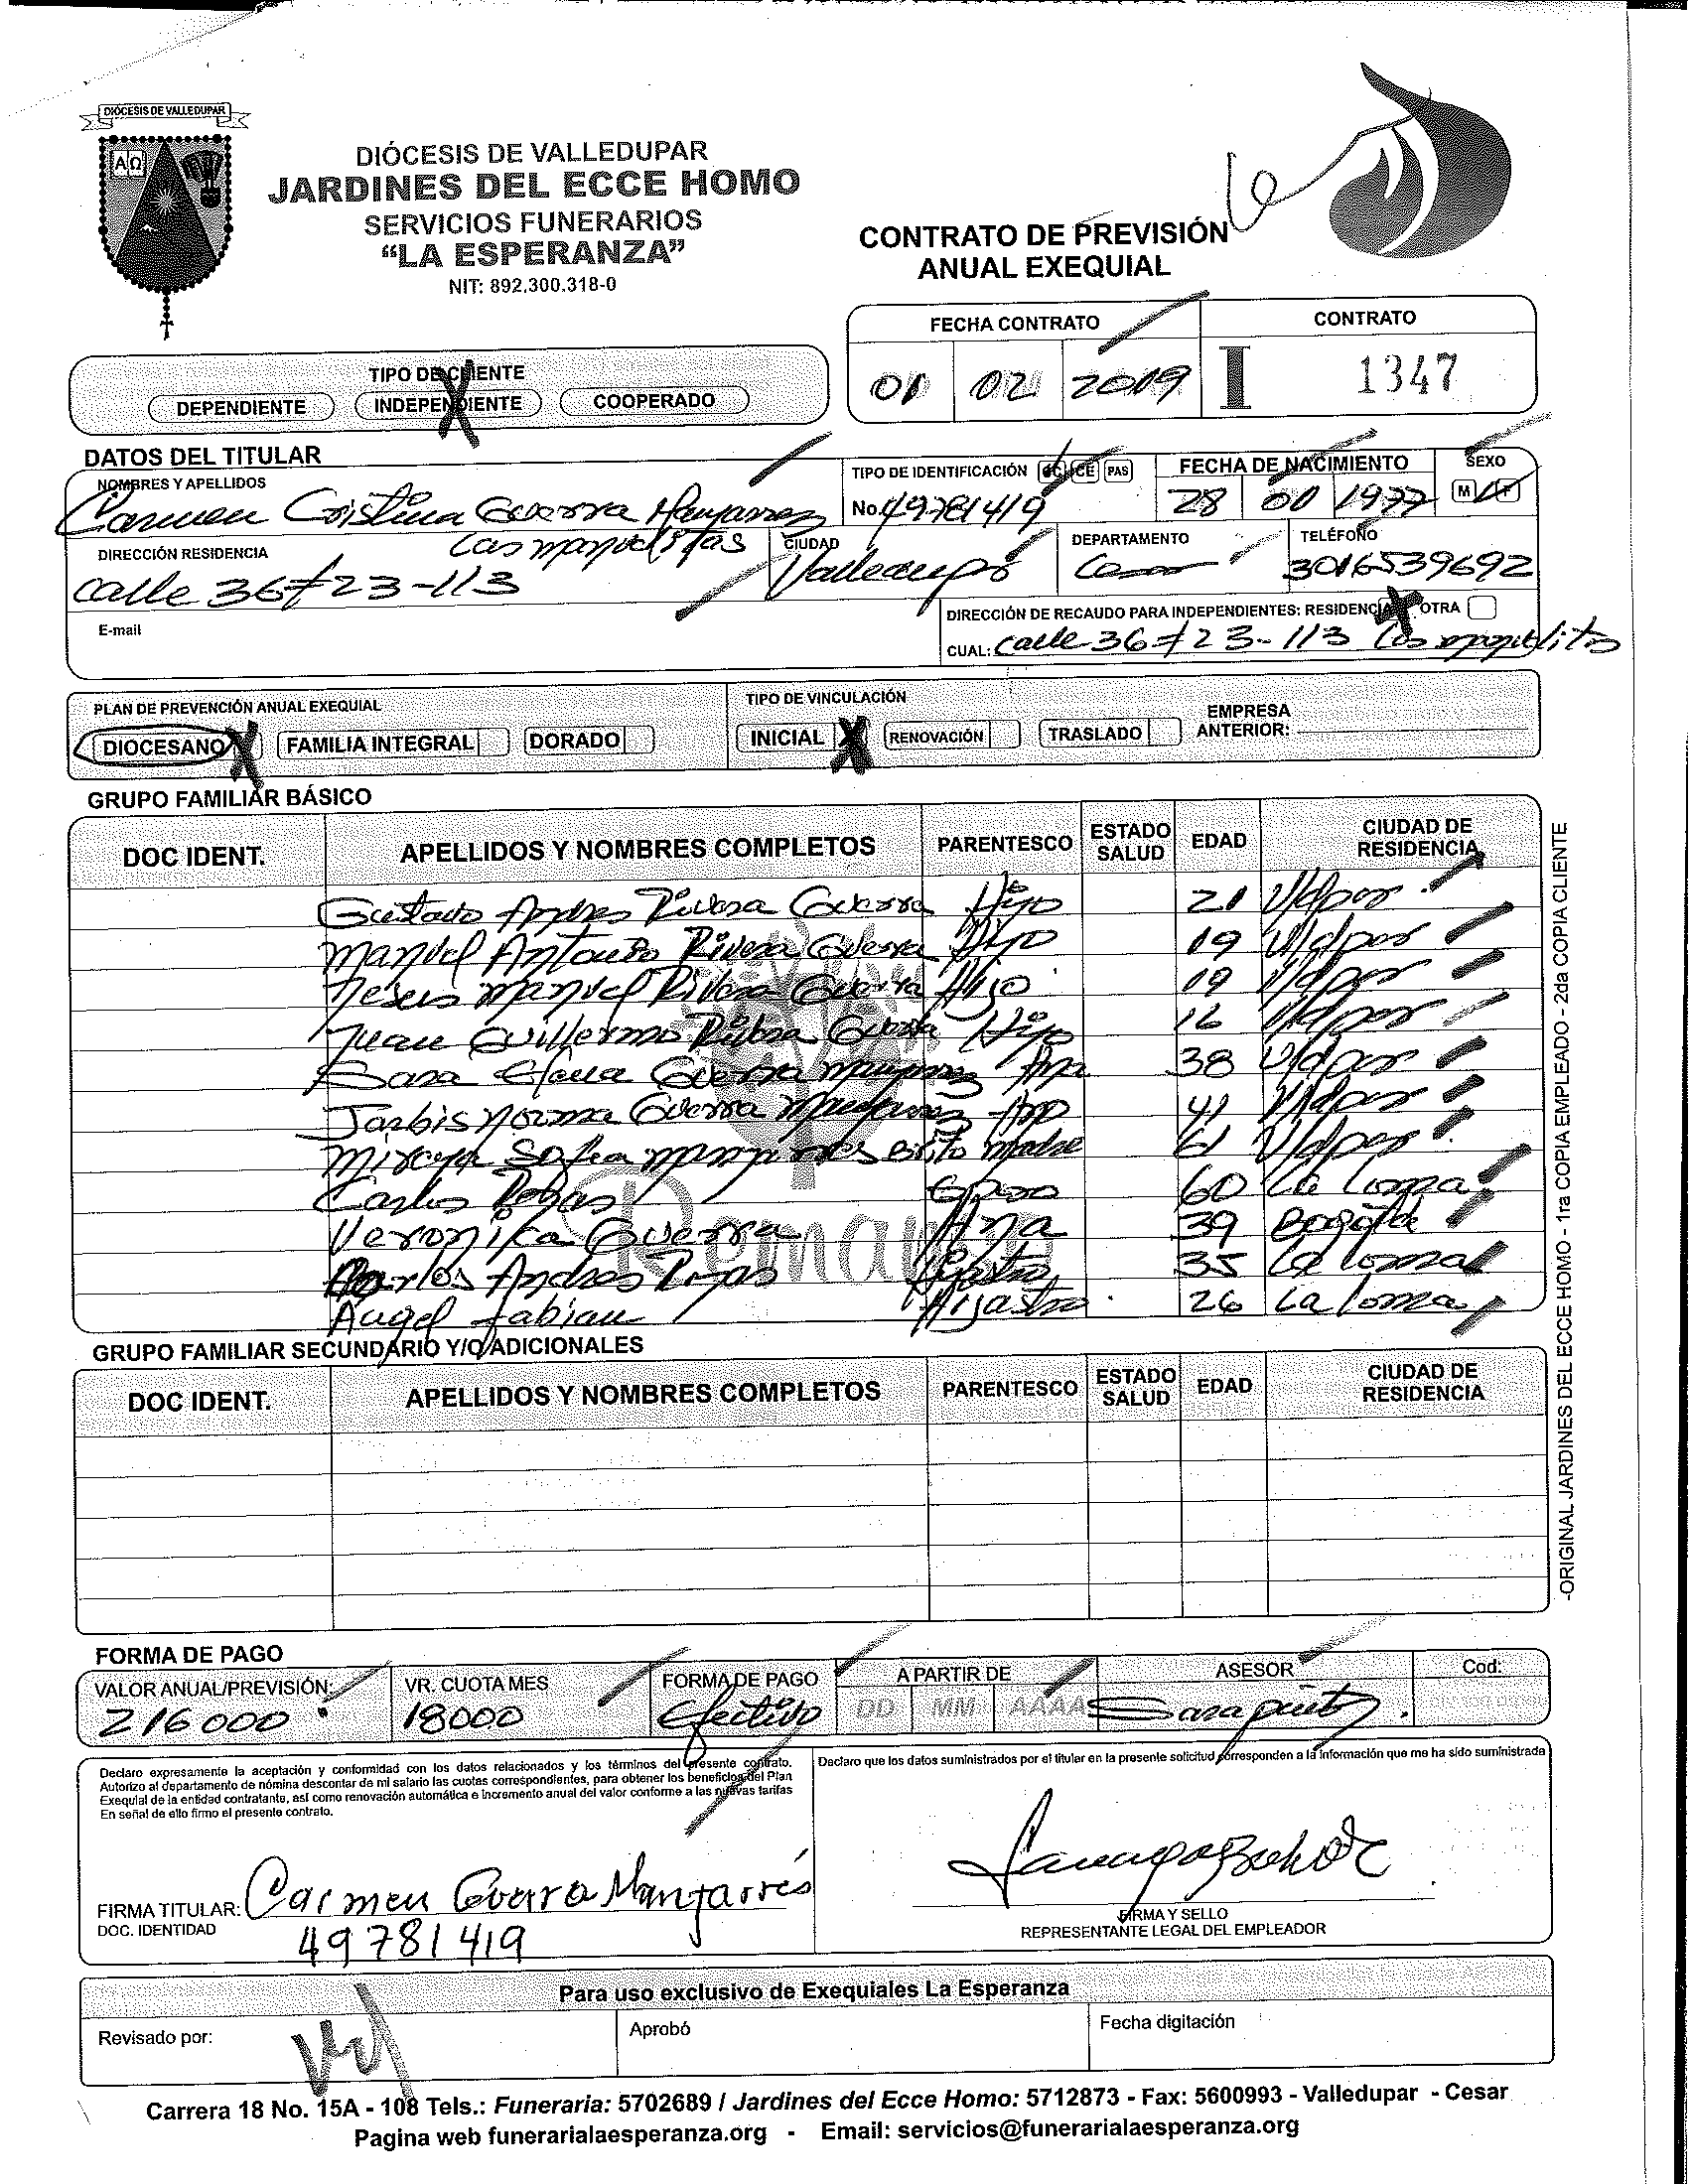 DIÓCESIS DE VALLEDUPAR
DIÓCESIS DE VALLEDUPAR
JARDINES DEL ECCE HOMO
SERVICIOS FUNERARIOS
“LA ESPERANZA”
NIT: 892.300.318-0
CONTRATO DE PREVISIÓN
ANUAL EXEQUIAL
FECHA CONTRATO CONTRATO
01 02 2019 I 1347
TIPO DE CLIENTE
DEPENDIENTE INDEPENDIENTE X COOPERADO
DATOS DEL TITULAR
NOMBRES Y APELLIDOS TIPO DE IDENTIFICACIÓN CC CE PAS FECHA DE NACIMIENTO SEXO
Carmen Cristina Guerra Manjarrez No. 49781419 28 01 1977 M F
DIRECCIÓN RESIDENCIA Las manuelitas CIUDAD DEPARTAMENTO TELÉFONO
calle 36 # 23-113 Valledupar Cesar 3016539692
E-mail DIRECCIÓN DE RECAUDO PARA INDEPENDIENTES: RESIDENCIA X OTRA
CUAL: calle 36 # 23-113 Las manuelitas
PLAN DE PREVENCIÓN ANUAL EXEQUIAL TIPO DE VINCULACIÓN
DIOCESANO X FAMILIA INTEGRAL DORADO INICIAL X RENOVACIÓN TRASLADO EMPRESA ANTERIOR:
GRUPO FAMILIAR BÁSICO
DOC IDENT. APELLIDOS Y NOMBRES COMPLETOS PARENTESCO ESTADO SALUD EDAD CIUDAD DE RESIDENCIA
Gustavo Andres Rivera Guerra Hijo 21 V/dpar
Manuel Antonio Rivera Guerra Hijo 19 V/dpar
Manuel Rivera Guerra Hijo 19 V/dpar
Juan Guillermo Rivera Guerra Hijo 16 V/dpar
Sara Elena Guerra Manjarrez Hna 38 V/dpar
Jarbis Norma Guerra Manjarrez 41 V/dpar
Sofia Manjarres Brito Madre 61 V/dpar
Carlos Rojas Esposo 60 La Loma
Veronika Guerra Hna 39 Bogota
Carlos Andres Rojas Hijastro 35 La Loma
Angel Fabian Hijastro 26 La Loma
GRUPO FAMILIAR SECUNDARIO Y/O ADICIONALES
DOC IDENT. APELLIDOS Y NOMBRES COMPLETOS PARENTESCO ESTADO SALUD EDAD CIUDAD DE RESIDENCIA
FORMA DE PAGO
VALOR ANUAL/PREVISIÓN: VR. CUOTA MES FORMA DE PAGO A PARTIR DE ASESOR Cod:
216000 18000 Efectivo DD MM AAAA Sara
Declaro expresamente la aceptación y conformidad con los datos relacionados y los términos del presente contrato.
Autorizo al departamento de nómina descontar de mi salario las cuotas correspondientes, para obtener los beneficios del Plan
Exequial de la entidad contratante, así como renovación automática e incremento anual del valor conforme a las nuevas tarifas
En señal de ello firmo el presente contrato.
Declaro que los datos suministrados por el titular en la presente solicitud corresponden a la información que me ha sido suministrada
FIRMA TITULAR: Carmen Guerra Manjarrés
DOC. IDENTIDAD 49781419
FIRMA Y SELLO
REPRESENTANTE LEGAL DEL EMPLEADOR
Para uso exclusivo de Exequiales La Esperanza
Revisado por: Aprobó Fecha digitación
Carrera 18 No. 15A - 108 Tels.: Funeraria: 5702689 / Jardines del Ecce Homo: 5712873 - Fax: 5600993 - Valledupar - Cesar
Pagina web funerarialaesperanza.org - Email: servicios@funerarialaesperanza.org
-ORIGINAL JARDINES DEL ECCE HOMO - 1ra COPIA EMPLEADO - 2da COPIA CLIENTE